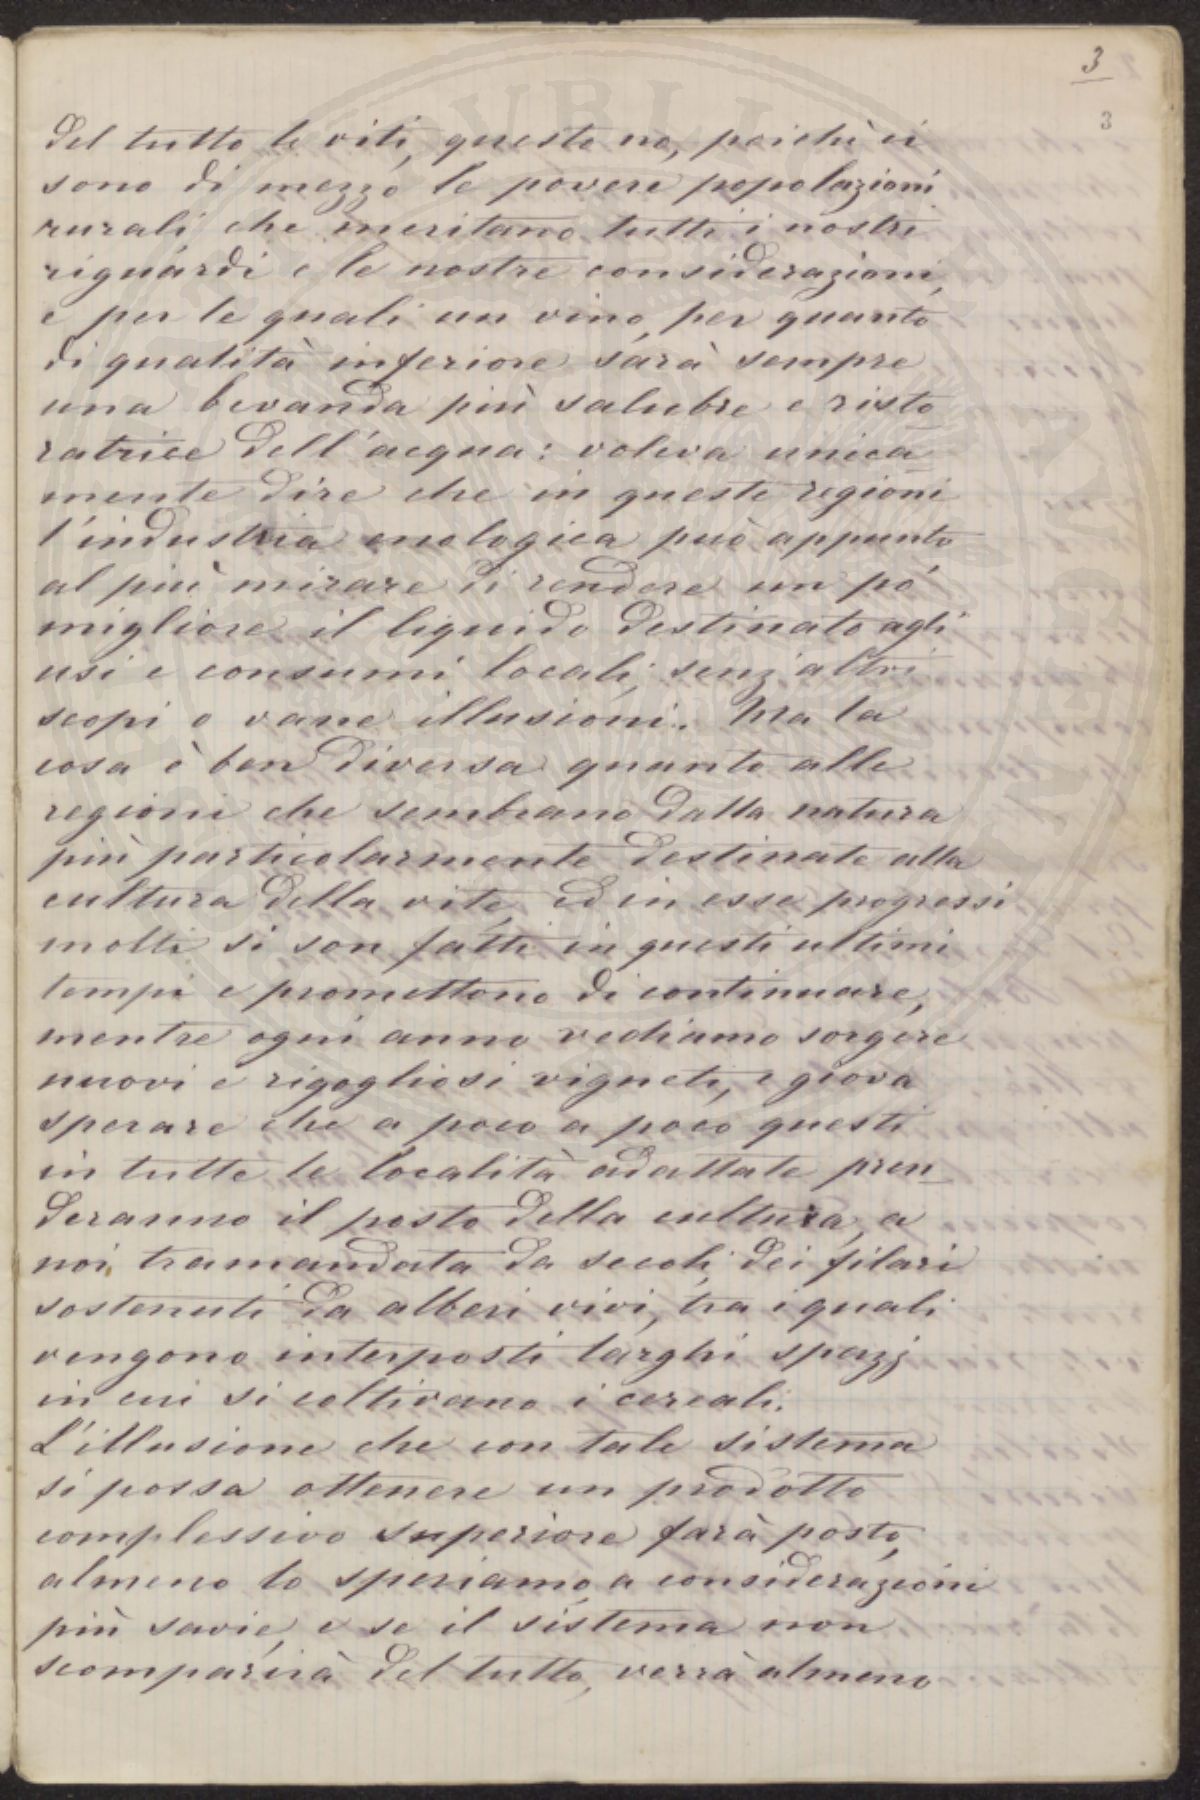 3
3
del tutto le viti, questo no, poichè ci
sono di mezzo le povere popolazioni
rurali che meritano tutti i nostri
riguardi e le nostre considerazioni,
e per le quali un vino, per quanto
di qualità inferiore sarà sempre
una bevanda più salubre e risto
ratrice dell'acqua: voleva unica
mente dire che in queste regioni
l'industria enologica può appunto
al più mirare di rendere un pó
migliore il liquido destinato agli
usi e consumi locali, senz'altri
scopi o vane illusioni. Ma la
cosa è ben diversa quanto alle
regioni che sembrano dalla natura
più particolarmente destinate alla
cultura della vite, ed in esse progressi
molti si son fatti in questi ultimi
tempi e promettono di continuare,
mentre ogni anno vediamo sorgere
nuovi e rigogliosi vigneti, e giova
sperare che a poco a poco questi
in tutte le località adattate pren
deranno il posto della cultura, a
noi tramandata da secoli, dei filari
sostenuti da alberi vivi, tra i quali
vengono interposti larghi spazj
in cui si coltivano i cereali.
L'illusione che con tale sistema
si possa ottenere un prodotto
complessivo superiore farà posto,
almeno lo speriamo, a considerazioni
più savie, e se il sistema non
scomparirà del tutto, verrà almeno